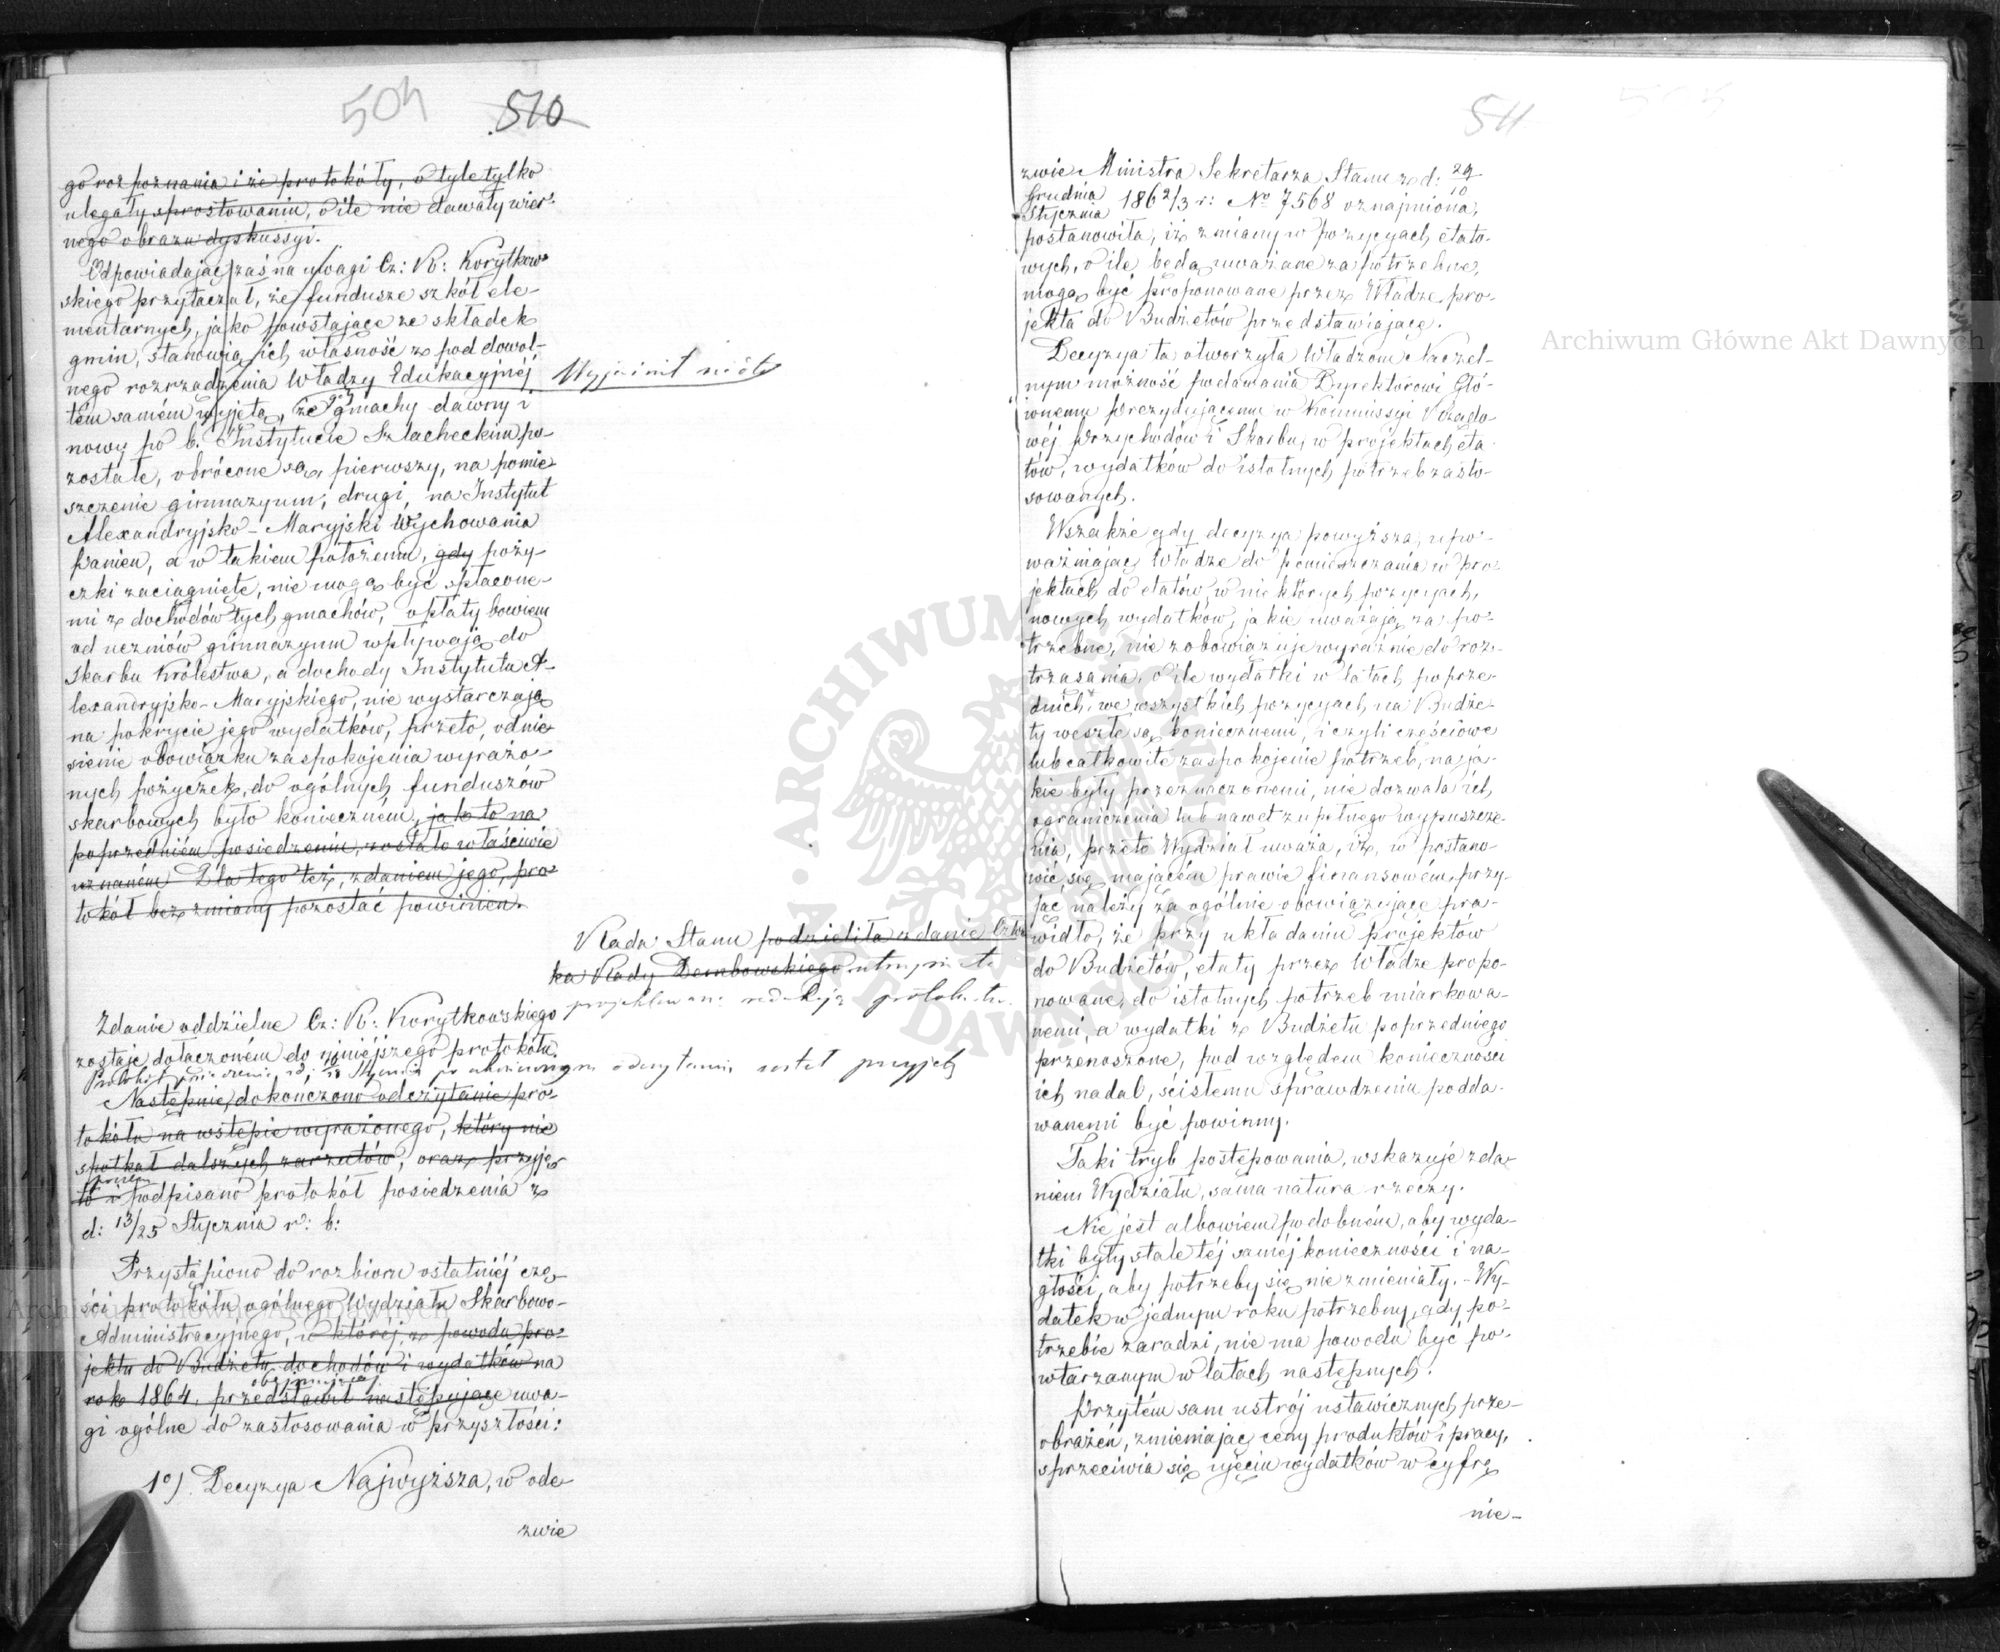 504 510
go rozpoznania i że protokóły, o tyle tylko
ulegały sprostowaniu, o ile nie dawały wier-
nego obrazu dyskussyi.
Odpowiadając zaś na uwagi Cz: R: Korytkow-
skiego przytaczał, że fundusze szkół ele-
mentarnych, jako powstające ze składek
gmin, stanowią ich własność z pod dowol-
nego rozrządzenia Władzy Edukacyjnéj
Wyjaśnił nadto
tém samém wyjętą, że gmachy dawny i
nowy po b. Instytucie Szlacheckim po-
zostałe, obrócone są, pierwszy, na pomie-
szczenie gimnazyum; drugi, na Instytut
Alexandryjsko-Maryjski Wychowania
Panien, a w takiem położeniu, gdy poży-
czki zaciągnięte, nie mogą być spłacone-
mi z dochodów tych gmachów, opłaty bowiem
od uczniów gimnazyum wpływają do
Skarbu Królestwa, a dochody Instytutu A-
lexandryjsko-Maryjskiego, nie wystarczają
na pokrycie jego wydatków, przeto, odnie-
sienie obowiązku zaspokojenia wyrażo-
nych pożyczek, do ogólnych funduszów
skarbowych było konieczném, jak to na
poprzedniém posiedzeniu, zostało właściwie
uznaném Dla tego też, zdaniem jego, pro-
tokół bez zmiany pozostać powinien.
Rada Stanu podzieliła zdanie Człon
ka Rady Dembowskiego utrzymała
projektowaną redakcją protokołu.
Zdanie oddzielne Cz: R: Korytkowskiego
zostaje dołączoném do niniéjszego protokółu.
Protokół posiedzenia d: Stycznia po ukończonym odczytaniu został przyjęty
Następnie, dokończono odczytanie pro-
tokółu na wstępie wyrażonego, który nie
spotkał dalszych zarzutów, oraz przyję-
to i podpisano protokół posiedzenia z
d: 13/25 Stycznia r: b:
Przystąpiono do rozbioru ostatniéj czę-
ści protokółu ogólnego Wydziału Skarbowo-
Administracyjnego, w któréj, z powodu pro-
jektu do Budżetu dochodów i wydatków na
obejmującéj
rok 1864. przedstawił następujące uwa-
gi ogólne do zastosowania w przyszłości:
1o). Decyzya Najwyższa, w ode-
zwie
511 505
zwie Ministra Sekretarza Stanu z d: 29
Grudnia / 10 Stycznia 1862/3 r: No 7568 oznajmiona,
postanowiła, iż zmiany w pozycyach etato-
wych, o ile będą uważane za potrzebne,
mogą być proponowane przez Władze pro-
jekta do Budżetów przedstawiające.
Decyzya ta otworzyła Władzom Naczel-
nym możność podawania Dyrektorowi Głó-
wnemu Prezydującemu w Kommissyi Rządo-
wéj Przychodów i Skarbu, w projektach eta-
tów, wydatków do istotnych potrzeb zasto-
sowanych.
Wszakże gdy decyzya powyższa, upo-
ważniając Władze do pomieszczania w pro-
jektach do etatów, w niektórych pozycyach,
nowych wydatków, jakie uważają za po-
trzebne, nie zobowiązuje wyraźnie do roz-
trząsania, o ile wydatki w latach poprze-
dnich we wszystkich pozycyach na Budże-
ty weszłe są koniecznemi, i czyli częściowe
lub całkowite zaspokojenie potrzeb, na ja-
kie były przeznaczonemi, nie dozwala ich
ograniczenia lub nawet zupełnego wypuszcze-
nia, przeto Wydział uważa, iż, w postano-
wić się mającém prawie finansowém, przy-
jąć należy za ogólnie obowiązujące pra-
widło, że przy układaniu projektów
do Budżetów, etaty przez Władze propo-
nowane, do istotnych potrzeb miarkowa-
nemi, a wydatki z Budżetu poprzedniego
przenoszone, pod względem konieczności
ich nadal, ścisłemu sprawdzeniu podda-
wanemi być powinny.
Taki tryb postępowania, wskazuje zda-
niem Wydziału, sama natura rzeczy.
Nie jest albowiem podobném, aby wyda-
tki były stale téj saméj konieczności i na-
głości, aby potrzeby się nie zmieniały. - Wy-
datek w jednym roku potrzebny, gdy po-
trzebie zaradzi, nie ma powodu być po-
wtarzanym w latach następnych.
Przytém sam ustrój ustawicznych prze-
obrażeń, zmieniając ceny produktów i pracy,
sprzeciwia się ujęciu wydatków w cyfrę
nie-
Archiwum Główne Akt Dawnych
Archiwum Główne Akt Dawnych
ARCHIWUM GŁÓWNE AKT DAWNYCH